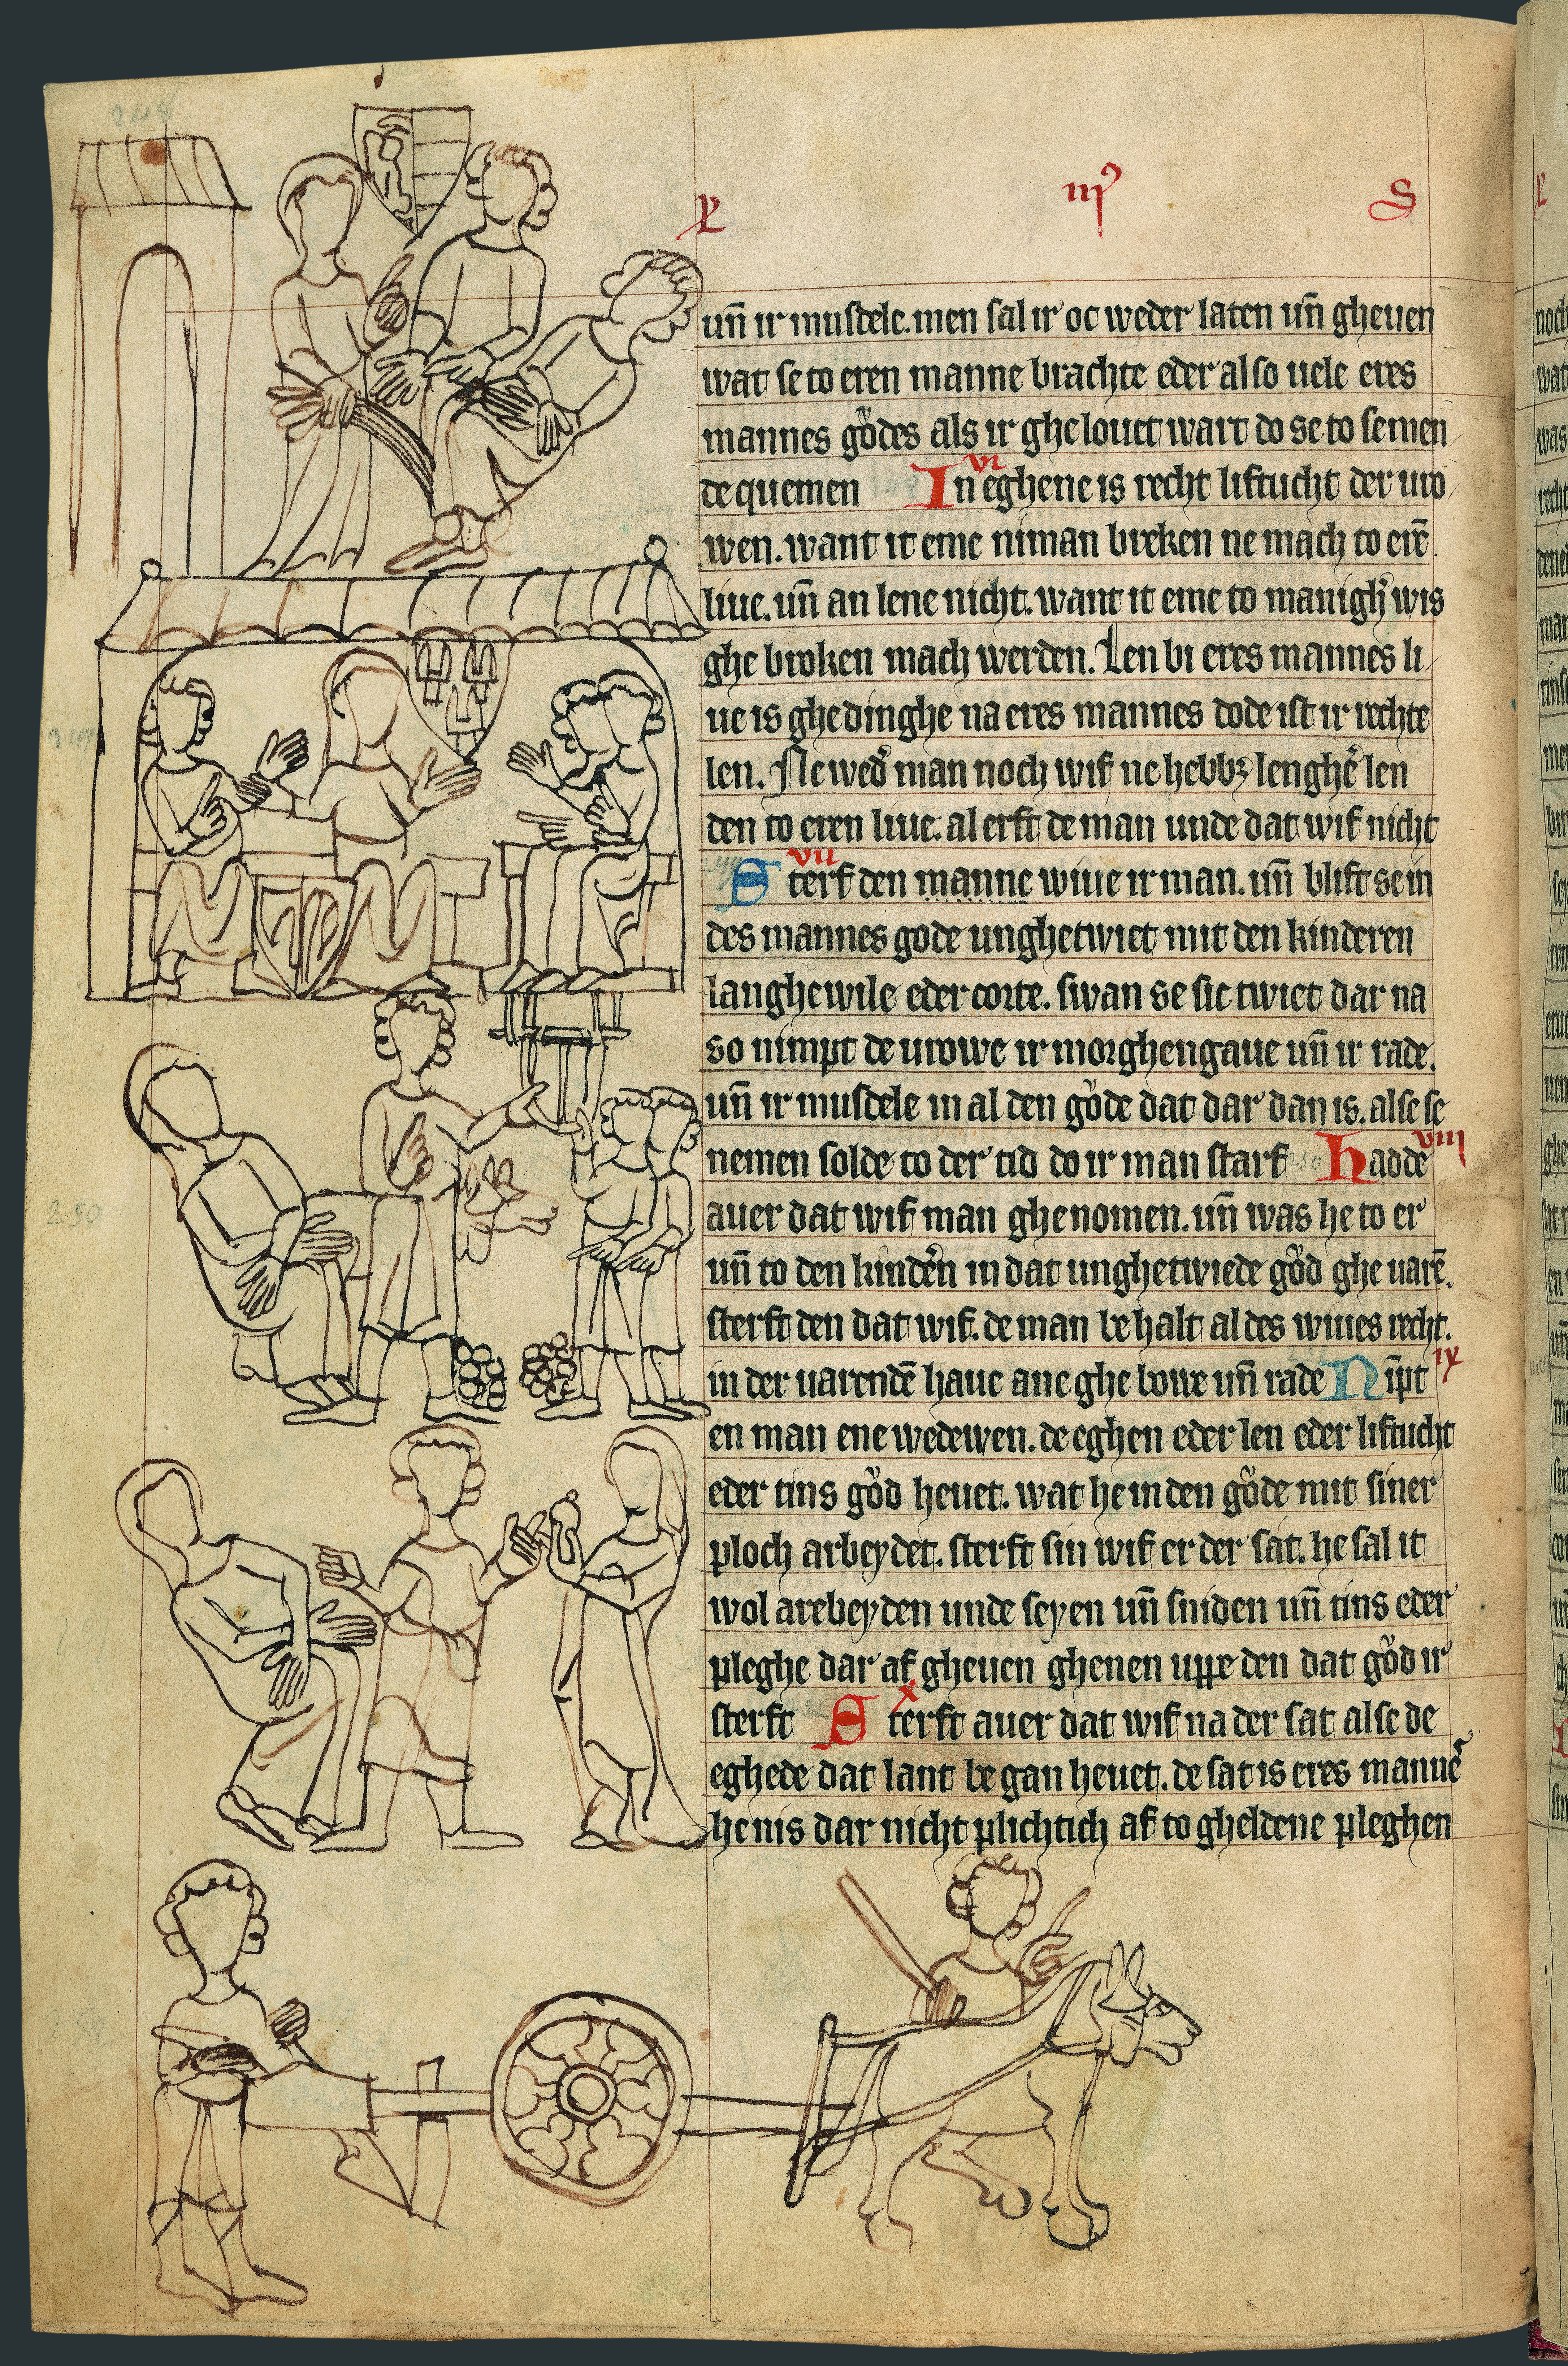 248
X iiiꝰ S
uñ ir musdele. men sal ir oc weder laten uñ gheuen
wat se to eren manne brachte eder also uele eres
mannes gůdes als ir ghelouet wart do se to semen
vi
de quemen 249 In eghene is recht liftucht der uro
wen. want it eme niman breken ne mach to erē
liue. uñ an lene nicht. want it eme to manigh' wis
ghe broken mach werden. Len bi eres mannes li
ue is ghedinghe na eres mannes dode ist ir rechte
249
len. Ne wed' man noch wif ne hebbꝫ lengh' len
den to eren liue. al erft de man unde dat wif nicht
vii
Sterf den manne wiue ir man. uñ blift se in
des mannes gode unghetwiet mit den kinderen
langhe wile eder corte. swan se sic twiet dar na
so nimpt de urowe ir morghengaue uñ ir rade.
uñ ir musdele in al den gůde dat dar dan is. alse se
viii
nemen solde to der tid do ir man starf 250 hadde
250
auer dat wif man ghenomen. uñ was he to er
uñ to den kind'n in dat unghetwiede gůd ghe uarē.
sterft den dat wif. de man behalt al des wiues recht.
ix
in der uarendē haue ane ghe bowe uñ rade Nīpt
en man ene wedewen. de eghen eder len eder liftucht
eder tins gůd heuet. wat he in den gůde mit siner
ploch arbeydet. sterft sin wif er der sat. he sal it
wol arebeyden unde seyen uñ sniden uñ tins eder
pleghe dar af gheuen ghenen uppe den dat gůd ir
x
sterft 252 Sterft auer dat wif na der sat alse de
eghede dat lant be gan heuet. de sat is eres manne'
he nis dar nicht plichtich af to gheldene pleghen
252